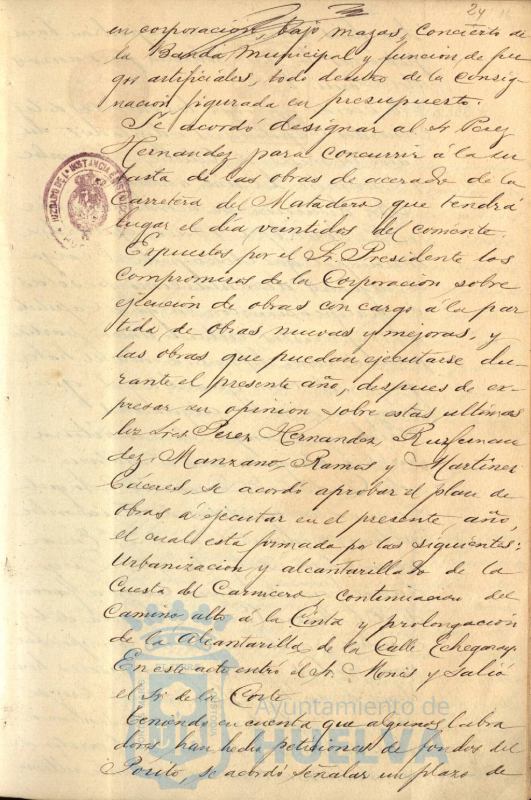 24
en corporación, bajo mazas, concierto de
la Banda Municipal y función de fue
gos artificiales, todo dentro de la consig
nación figurada en presupuesto.
Se acordó designar al Sr. Perez
Hernandez para concurrir á la su
basta de las obras de acerado de la
Carretera del Matadero que tendrá
lugar el día veintidos del corriente.
Expuestos por el Sr. Presidente los
compromisos de la Corporación sobre
ejecución de obras con cargo á la par
tida de obras nuevas y mejoras, y
las obras que puedan ejecutarse du-
rante el presente año, despues de ex-
presar su opinion sobre estas ultimas
los Sres Perez Hernandez, Ruifernan
dez, Manzano, Ramos y Martinez
Caceres, se acordó aprobar el plan de
obras á ejecutar en el presente año,
el cual está formado por las siguientes:
Urbanizacion y alcantarillado de la
Cuesta del Carnicero, continuacion del
Camino alto á la Cinta y prolongación
de la Alcantarilla de la Calle Echegaray.
En este acto entró el Sr. Monis y salió
el Sr. de la Corte
Teniendo en cuenta que algunos labra
dores han hecho peticiones de fondos del
Posito, se acordó señalar un plazo de
JUZGADO DE 1ª INSTANCIA
Ayuntamiento de
HUELVA